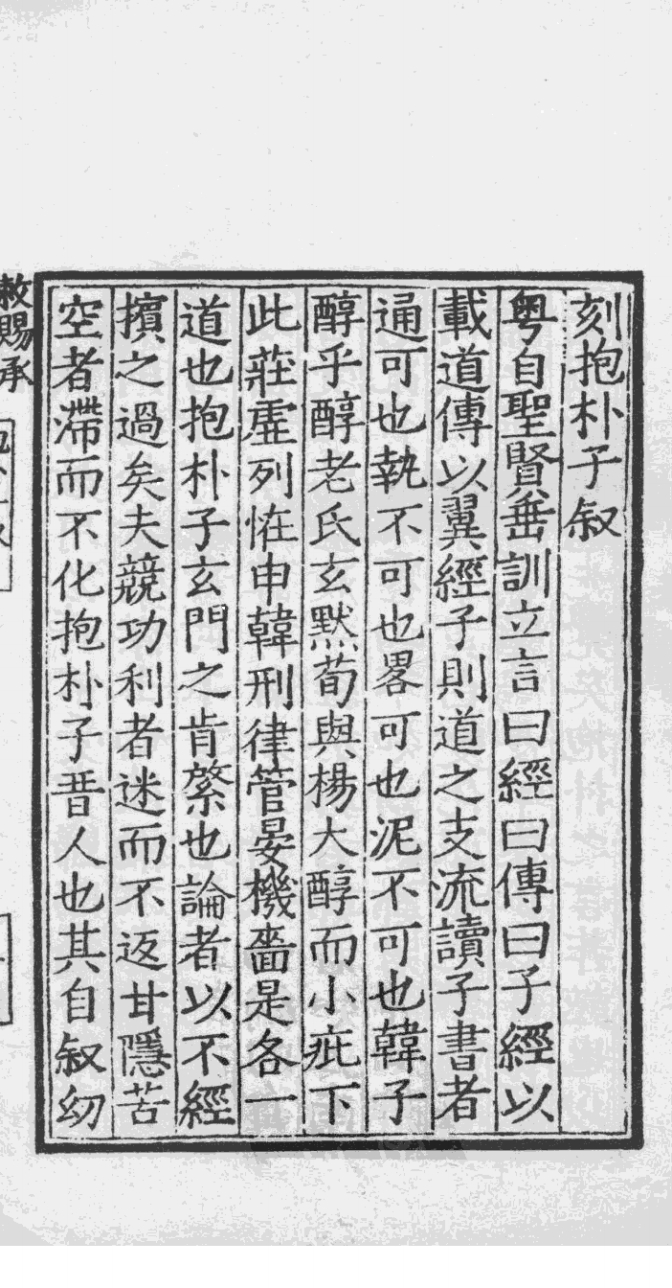 刻抱朴子叙
粤自聖賢埀訓立言曰經曰傳曰子經以
載道傳以翼經子則道之支流讀子書者
通可也執不可也畧可也泥不可也韓子
醇乎醇老氏玄默荀與楊大醇而小疵下
此莊虛列恠申韓刑律管晏機嗇是各一
道也抱朴子玄門之肯綮也論者以不經
擯之過矣夫競功利者迷而不返甘隱苦
空者滯而不化抱朴子昔人也其自叙幼
敕賜承